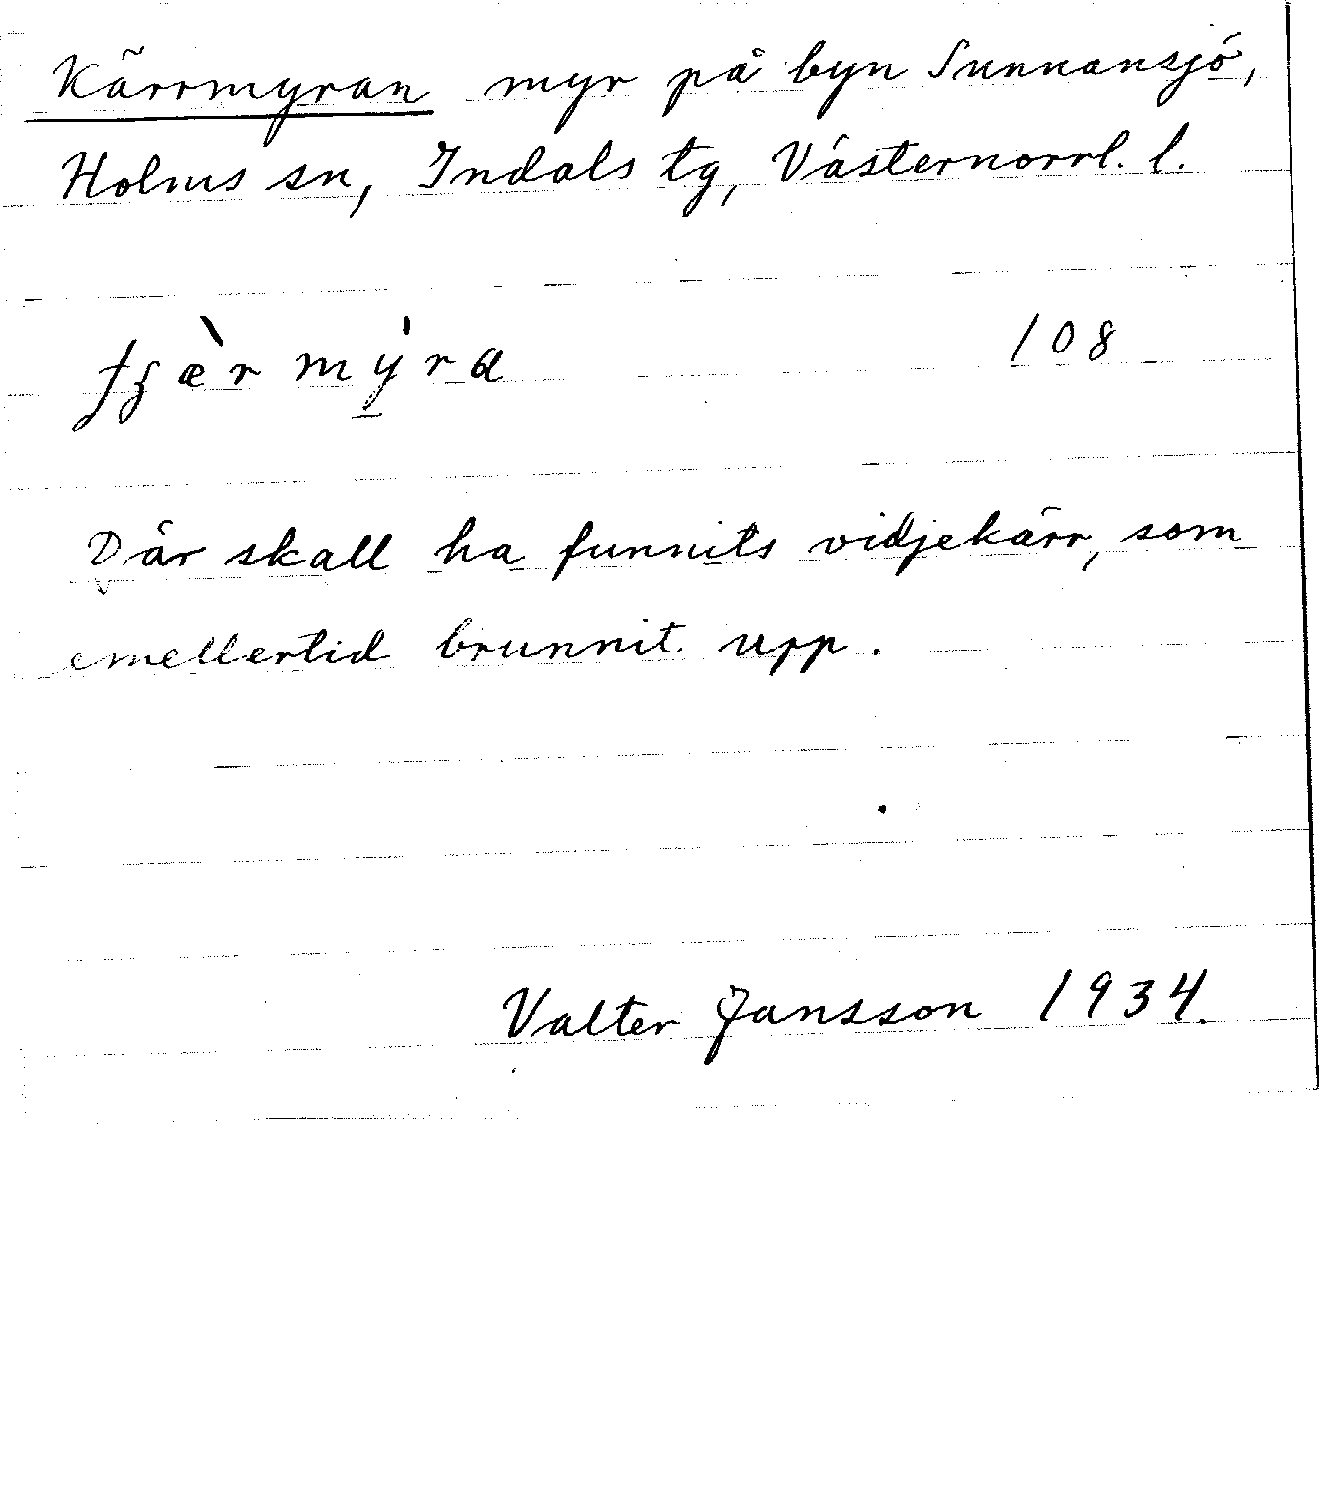 Kärrmyran myr på byn Sunnansjö,
Holms sn, Indals tg, Västernorrl. l.
108
Där skall ha funnits vidjekärr, som
emellertid brunnit upp.
Valter Jansson 1934.